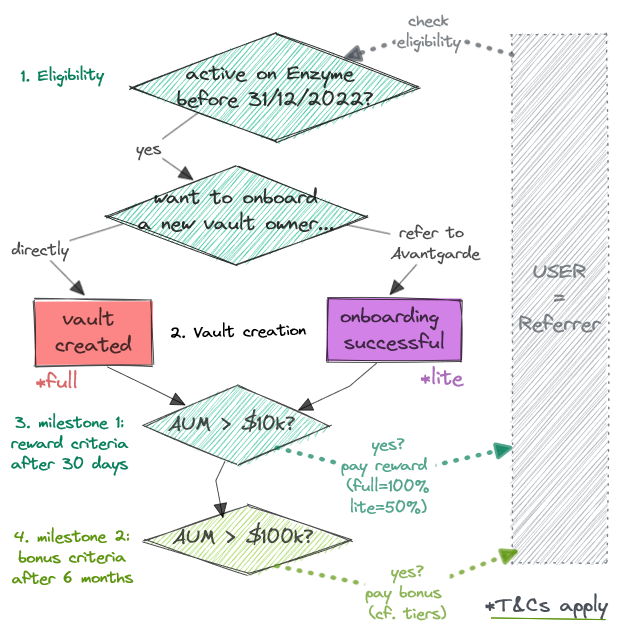 check
eligibility
1. Eligibility
active on Enzyme
before 31/12/2022?
yes
want to onboard
a new vault owner...
directly
refer to
Avantgarde
USER
=
Referrer
vault
created
2. Vault creation
onboarding
successful
*full
*lite
3. milestone 1:
reward criteria
after 30 days
AUM > $10k?
yes?
pay reward
(full=100%
lite=50%)
4. milestone 2:
bonus criteria
after 6 months
AUM > $100k?
yes?
pay bonus
(cf. tiers)
*T&Cs apply